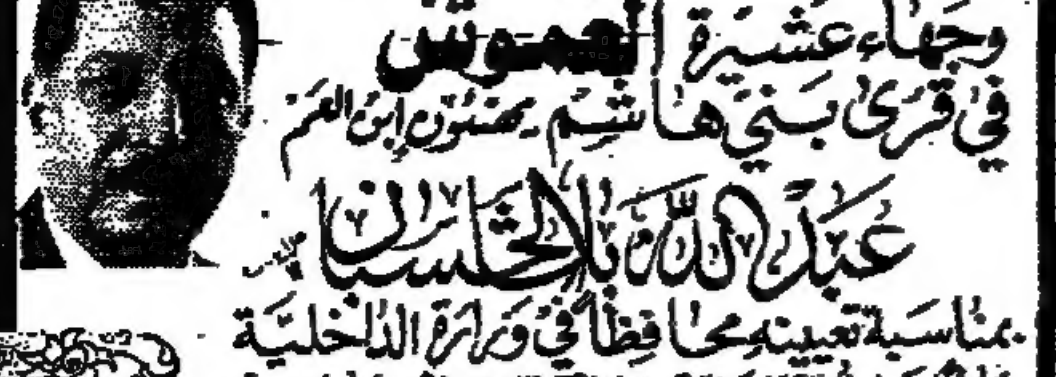 وجهاء عشيرة العموش
في قرى بني هاشم يهنئون إبن العم
عبد الله بلال
بمناسبة تعيينه محافظاً في وزارة الداخلية